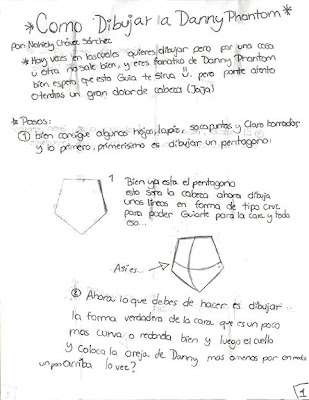 *Como Dibujar la Danny Phantom*
por: Chávez Sánchez
* Hay veces en las cuales quieres dibujar pero por una cosa
u otra no sale bien, y eres fanatico de Danny Phantom
bien espero que esta Guia te sirva Ü, pero ponte atento
o tendras un gran dolor de cabeza (Jaja)
* Pasos:
① bien consigue algunas hojas, lapiz, sacapuntas y Claro borrador
y lo primero, primerisimo es dibujar un pentagono.
1 Bien ya esta el pentagono
esto sera la cabeza ahora dibuja
unas lineas en forma de tipo cruz
para poder Guiarte para la cara y todo
eso...
Asi es...
② Ahora lo que debes de hacer es dibujar
la forma verdadera de la cara que es un poco
mas curva o redonda bien y luego el cuello
y coloca la oreja de Danny mas o menos por en medio
un poco arriba lo vez?
1